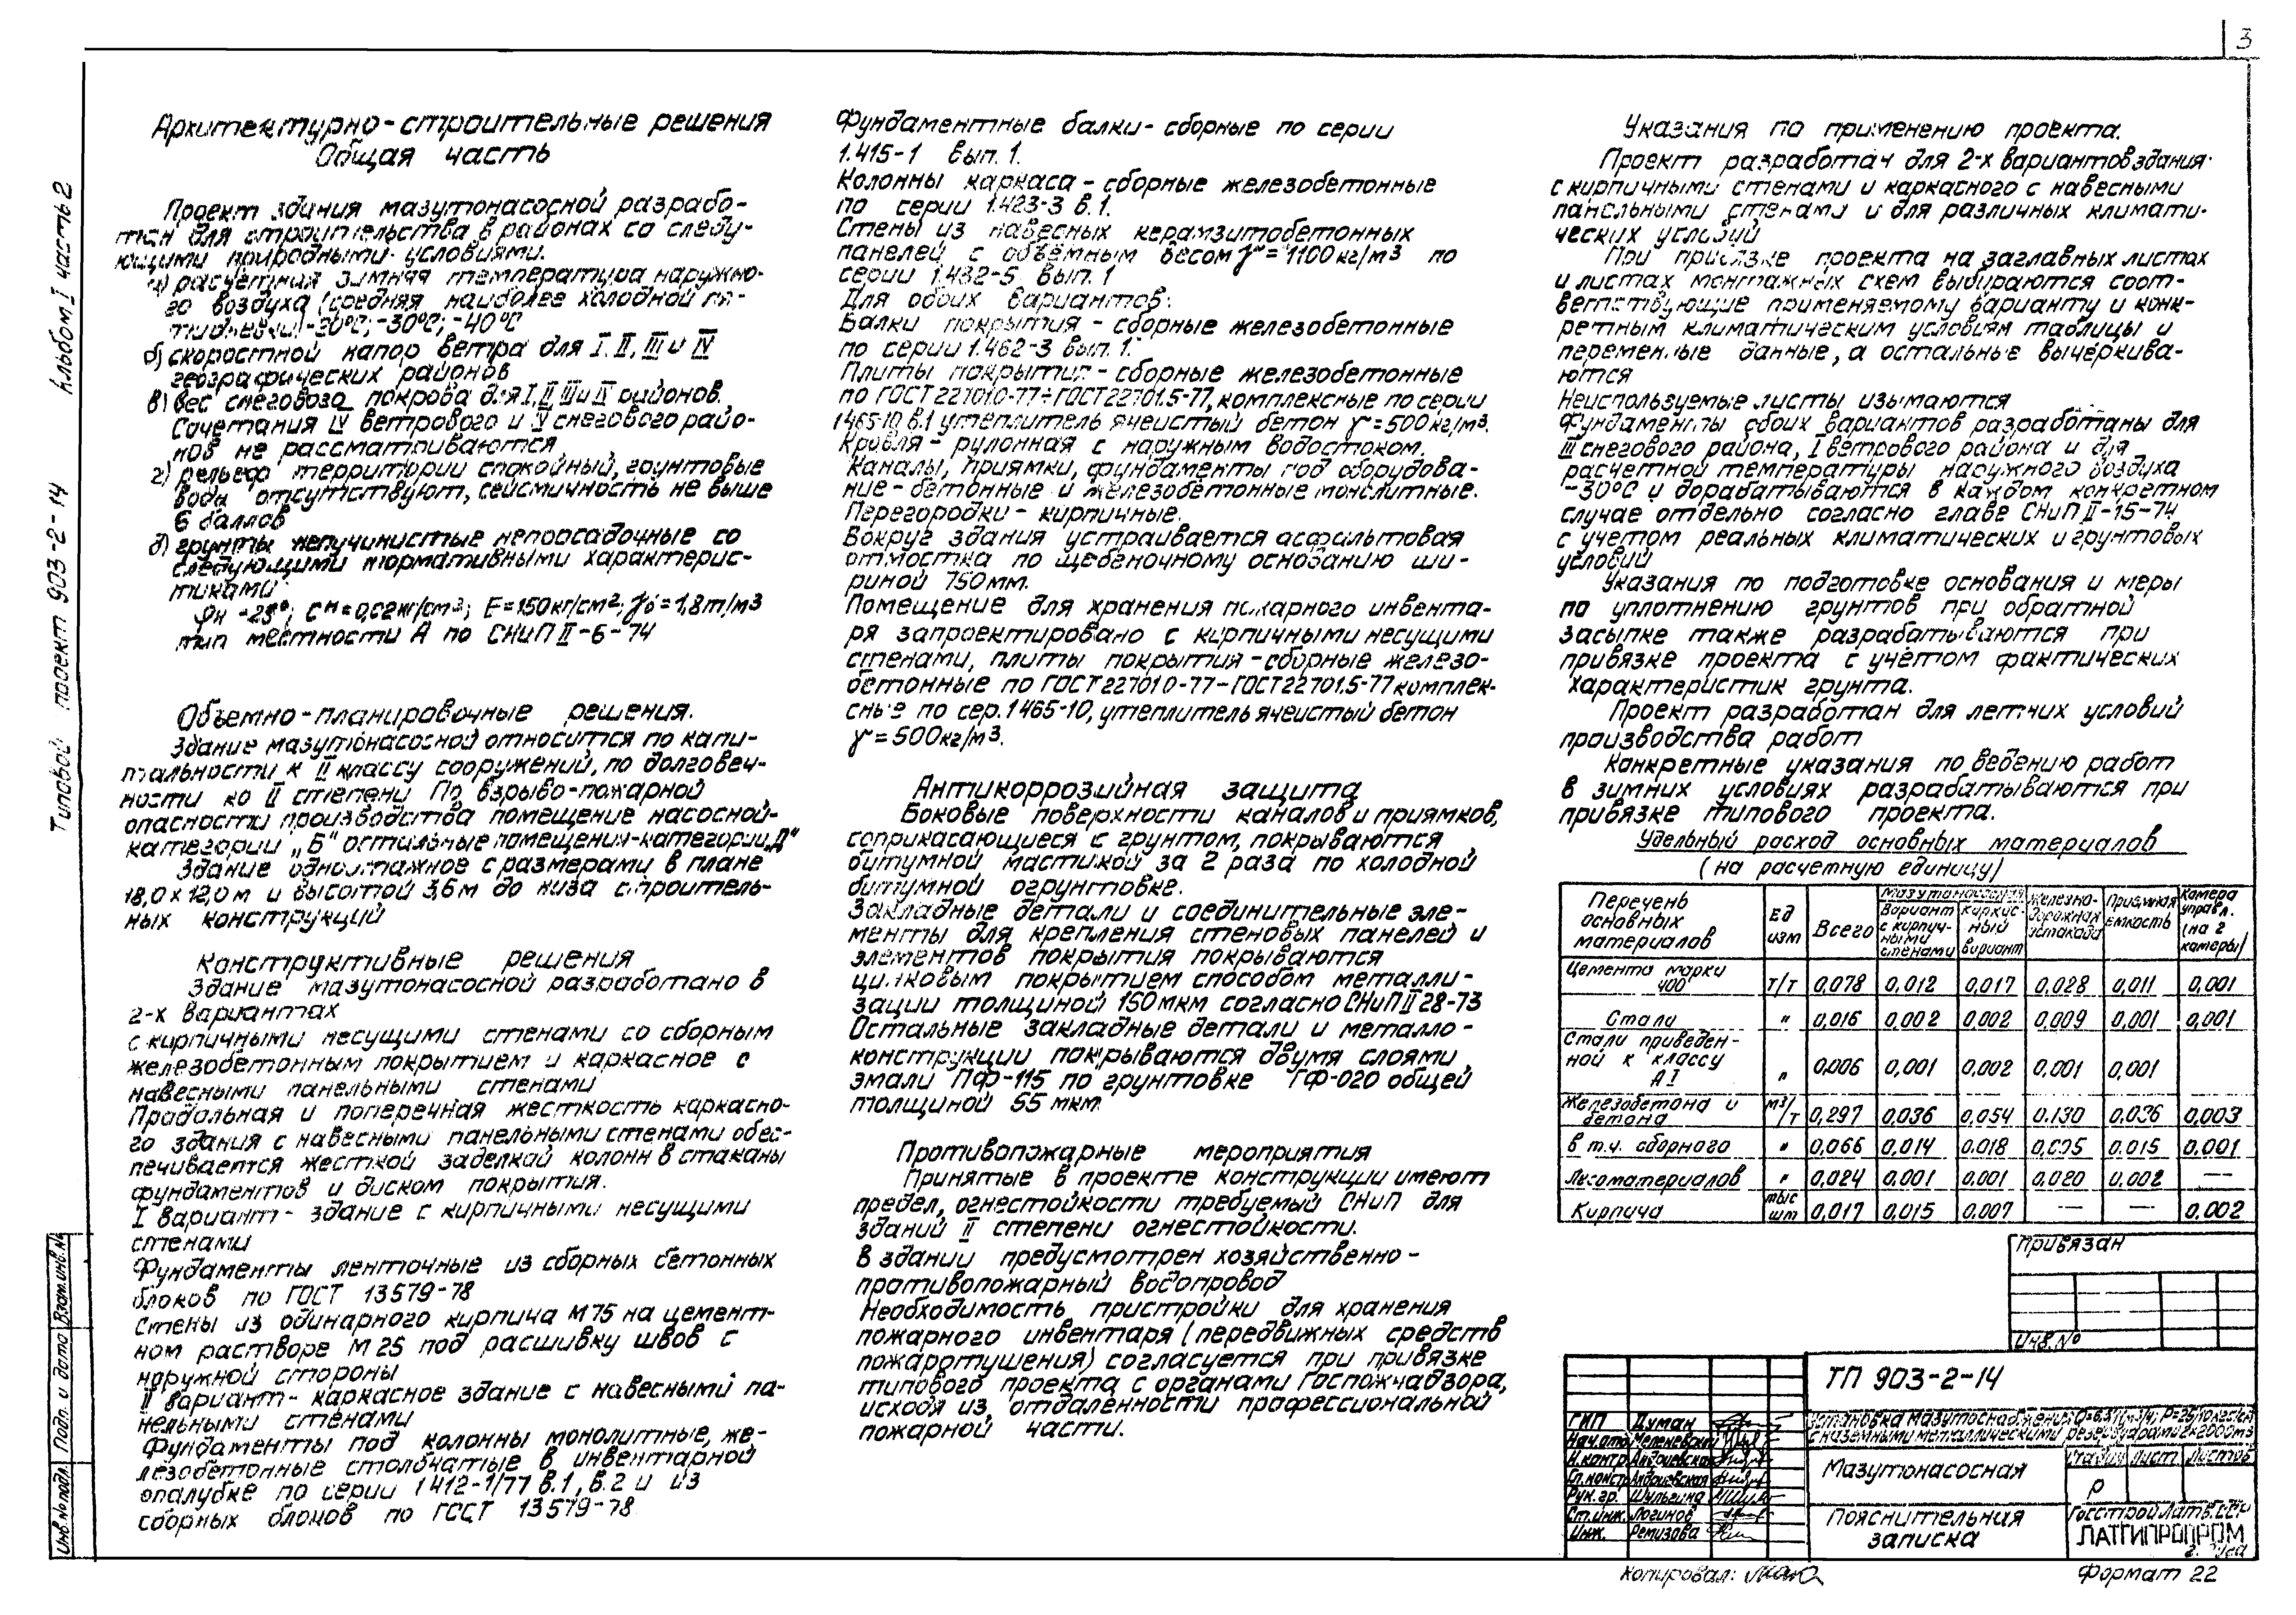 3
Альбом I часть 2
Типовой проект 903-2-14
Архитектурно-строительные решения
Общая часть
Проект здания мазутонасосной разрабо-
тан для строительства в районах со следу-
ющими природными условиями.
а) расчетная зимняя температура наружно-
го воздуха (средняя наиболее холодной пя-
тидневки) -20°С; -30°С; -40°С
б) скоростной напор ветра для I, II, III и IV
географических районов
в) вес снегового покрова для I, II, III и IV районов.
Сочетания IV ветрового и IV снегового райо-
нов не рассматриваются
г) рельеф территории спокойный, грунтовые
воды отсутствуют, сейсмичность не выше
6 баллов
д) грунты непучинистые непросадочные со
следующими нормативными характерис-
тиками
φн -28°; Сн = 0,02 кг/см²; Е=150 кг/см²; γо = 1,8 т/м3
тип местности А по СНиП II-6-74
Объемно-планировочные решения.
Здание мазутонасосной относится по капи-
тальности к II классу сооружений, по долговеч-
ности ко II степени По взрыво-пожарной
опасности производства помещение насосной-
категории „Б" остальные помещения-категории „Д"
Здание одноэтажное с размерами в плане
18,0 х 12,0 м и высотой 3,6 м до низа строитель-
ных конструкций
Конструктивные решения
Здание мазутонасосной разработано в
2-х вариантах
с кирпичными несущими стенами со сборным
железобетонным покрытием и каркасное с
навесными панельными стенами
Продольная и поперечная жесткость каркасно-
го здания с навесными панельными стенами обес-
печивается жесткой заделкой колонн в стаканы
фундаментов и диском покрытия.
I вариант - здание с кирпичными несущими
стенами
Фундаменты ленточные из сборных бетонных
блоков по ГОСТ 13579-78
Стены из одинарного кирпича М75 на цемент-
ном растворе М 25 под расшивку швов с
наружной стороны
II вариант - каркасное здание с навесными па-
нельными стенами
Фундаменты под колонны монолитные, же-
лезобетонные столбчатые в инвентарной
опалубке по серии 1412-1/77 В.1, В.2 и из
сборных блоков по ГОСТ 13579-78
Фундаментные балки - сборные по серии
1.415-1 вып. 1.
Колонны каркаса - сборные железобетонные
по серии 1.423-3 в.1.
Стены из навесных керамзитобетонных
панелей с объёмным весом γ = 1100 кг/м3 по
серии 1.432-5 вып. 1
Для обоих вариантов:
Балки покрытия - сборные железобетонные
по серии 1.462-3 вып. 1.
Плиты покрытия - сборные железобетонные
по ГОСТ 22701.0-77÷ГОСТ 22701.5-77, комплексные по серии
1465-10 в.1 утеплитель ячеистый бетон γ = 500 кг/м3.
Кровля - рулонная с наружным водостоком.
Каналы, приямки, фундаменты под оборудова-
ние - бетонные и железобетонные монолитные.
Перегородки - кирпичные.
Вокруг здания устраивается асфальтовая
отмостка по щебеночному основанию ши-
риной 750 мм.
Помещение для хранения пожарного инвента-
ря запроектировано с кирпичными несущими
стенами, плиты покрытия - сборные железо-
бетонные по ГОСТ 22701 0-77-ГОСТ 22701.5-77 комплек-
сные по сер. 1465-10, утеплитель ячеистый бетон
γ = 500 кг/м3.
Антикоррозийная защита
Боковые поверхности каналов и приямков,
соприкасающиеся с грунтом, покрываются
битумной мастикой за 2 раза по холодной
битумной огрунтовке.
Закладные детали и соединительные эле-
менты для крепления стеновых панелей и
элементов покрытия покрываются
цинковым покрытием способом металли-
зации толщиной 150 мкм согласно СНиП II 28-73
Остальные закладные детали и металло-
конструкции покрываются двумя слоями
эмали ПФ-115 по грунтовке ГФ-020 общей
толщиной 55 мкм
Противопожарные мероприятия
Принятые в проекте конструкции имеют
предел, огнестойкости требуемый СНиП для
зданий II степени огнестойкости.
В здании предусмотрен хозяйственно-
противопожарный водопровод
Необходимость пристройки для хранения
пожарного инвентаря (передвижных средств
пожаротушения) согласуется при привязке
типового проекта с органами Госпожнадзора,
исходя из отдаленности профессиональной
пожарной части.
Указания по применению проекта.
Проект разработан для 2-х вариантов здания.
с кирпичными стенами и каркасного с навесными
панельными стенами и для различных климати-
ческих условий
При привязке проекта на заглавных листах
и листах монтажных схем выбираются соот-
ветствующие применяемому варианту и конк-
ретным климатическим условиям таблицы и
переменные данные, а остальные вычеркива-
ются
Неиспользуемые листы изымаются
Фундаменты обоих вариантов разработаны для
III снегового района, I ветрового района и для
расчетной температуры наружного воздуха
-30°С и дорабатываются в каждом конкретном
случае отдельно согласно главе СНиП II-15-74
с учетом реальных климатических и грунтовых
условий
Указания по подготовке основания и меры
по уплотнению грунтов при обратной
засыпке также разрабатываются при
привязке проекта с учётом фактических
характеристик грунта.
Проект разработан для летних условий
производства работ
Конкретные указания по ведению работ
в зимних условиях разрабатываются при
привязке типового проекта.
Удельный расход основных материалов
(на расчетную единицу)
Перечень основных материалов Ед изм Всего Мазутонасосная Вариант с кирпич-ными стенами Каркас-ный вариант Железно-дорожная эстакада Приемная емкость Камера управл. (на 2 камеры)
Цемента марки 400 т/т 0,078 0,012 0,017 0,028 0,011 0,001
Стали " 0,016 0,002 0,002 0,009 0,001 0,001
Стали приведен-ной к классу АI " 0,006 0,001 0,002 0,001 0,001
Железобетона и бетона м3/т 0,297 0,036 0,054 0.130 0.036 0,003
в т.ч. сборного " 0,066 0,014 0.018 0.015 0.001
Лесоматериалов " 0,024 0.001 0.001 0.020 0.002 —
Кирпича тыс шт 0,017 0,015 0.007 — — 0.002
Привязан
Инв.№
ТП 903-2-14
с наземными металлическими резервуарами 2х2000м3
ГИП Думан
Нач.отд
Н.контр Андриевская
Гл.констр Андриевская
Рук.гр. Шульгина
Ст.инж. Логинов
Инж. Ремизова
Мазутонасосная
Стадия Лист Листов
Р
Пояснительная
записка
Госстрой Латв.ССР
ЛАТГИПРОПРОМ
г. Рига
Копировал:
Формат 22
Инв.№ подл. Подп. и дата Взам.инв.№